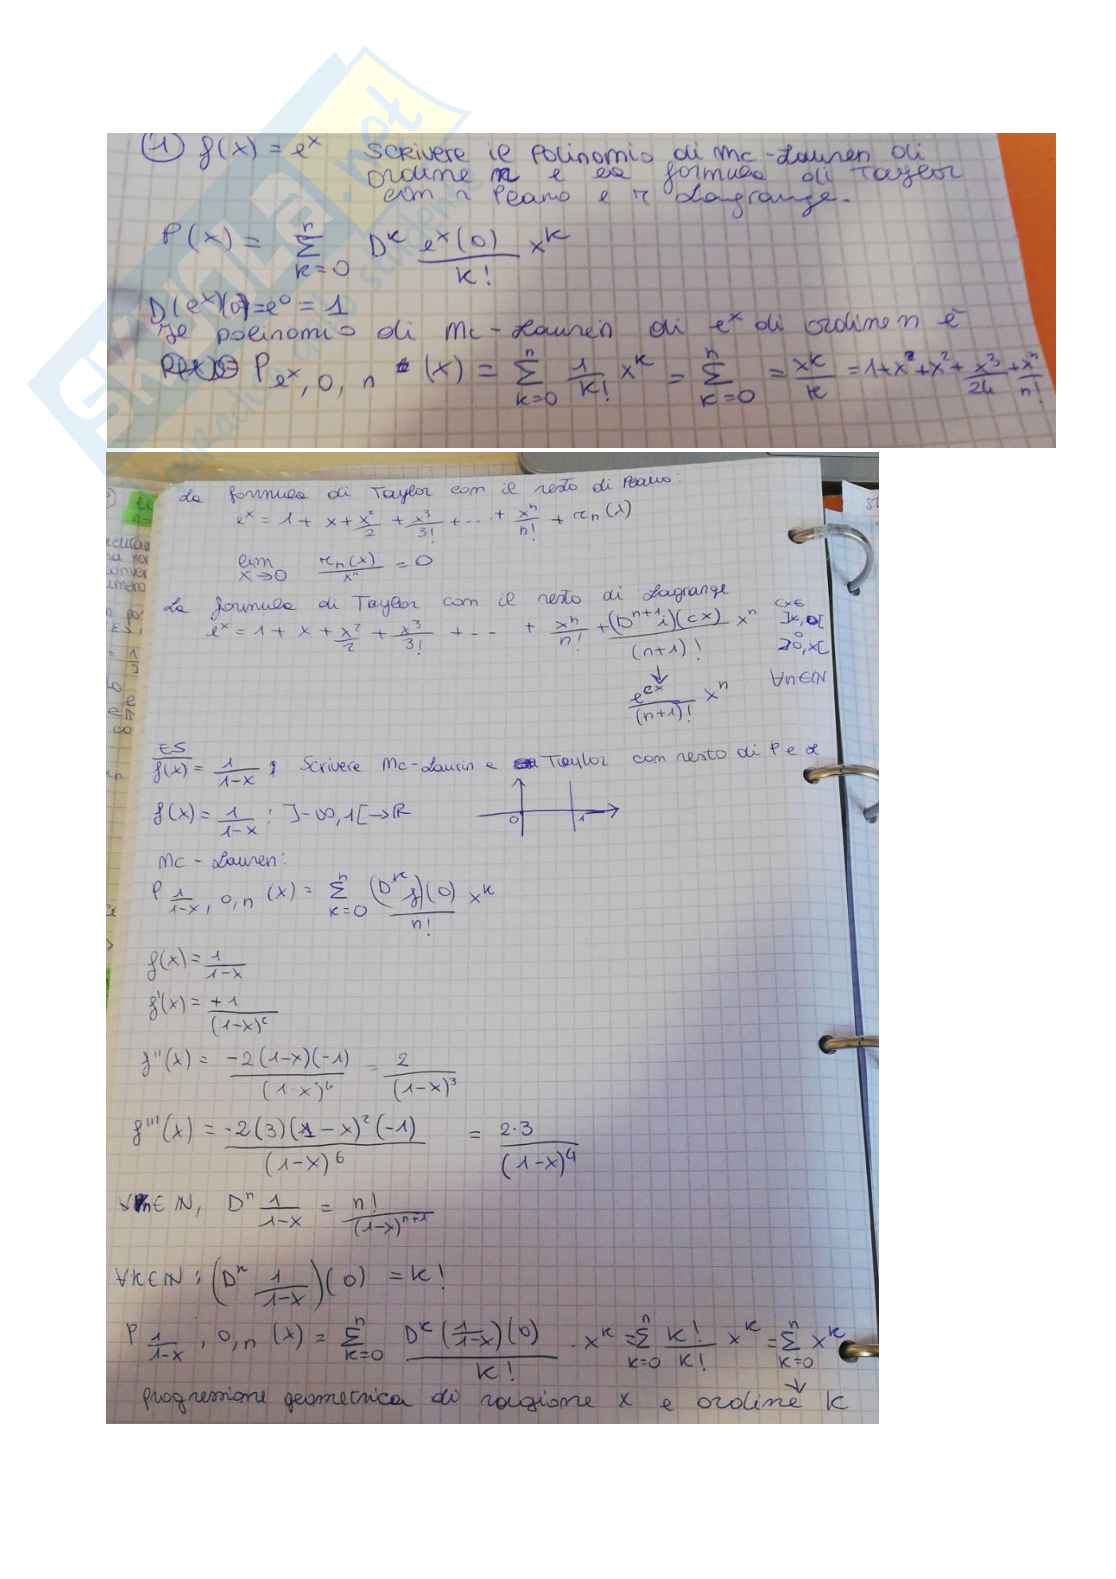 1 f(x) = e^x Scrivere il polinomio di Mc-Lauren di
ordine n e la formula di Taylor
con r Peano e r Lagrange.
P(x) = Σ_{k=0}^{n} D^k e^x(0)/k! x^k
D(e^x)(0) = e^0 = 1
Il polinomio di Mc-Lauren di e^x di ordine n è
P_{e^x, 0, n} (x) = Σ_{k=0}^{n} 1/k! x^k = Σ_{k=0}^{n} = x^k/k = 1 + x^2 + x^2 + x^3/24 + x^n/n!
La formula di Taylor con il resto di Peano:
e^x = 1 + x + x^2/2 + x^3/3! + ... + x^n/n! + r_n(x)
lim x→0 r_n(x)/x^n = 0
La formula di Taylor con il resto di Lagrange
e^x = 1 + x + x^2/2 + x^3/3! + ... + x^n/n! + (D^{n+1} f)(cx)/(n+1)! x^n cx∈ ]x,0[
]0,x[
∀n∈N
↓
e^{cx}/(n+1)! x^n
ES
f(x) = 1/(1-x) ; Scrivere Mc-Laurin e Taylor con resto di P e L
f(x) = 1/(1-x) : ]-∞,1[→R
0 1
Mc-Lauren:
P_{1/(1-x), 0, n} (x) = Σ_{k=0}^{n} (D^k f)(0)/n! x^k
f(x) = 1/(1-x)
f'(x) = +1/(1-x)^2
f''(x) = -2(1-x)(-1)/(1-x)^4 = 2/(1-x)^3
f'''(x) = -2(3)(1-x)^2(-1)/(1-x)^6 = 2·3/(1-x)^4
∀n∈N, D^n 1/(1-x) = n!/(1-x)^{n+1}
∀k∈N : (D^k 1/(1-x))(0) = k!
P_{1/(1-x), 0, n} (x) = Σ_{k=0}^{n} D^k(1/(1-x))(0)/k! · x^k = Σ_{k=0}^{n} k!/k! x^k = Σ_{k=0}^{n} x^k
↓
progressione geometrica di ragione x e ordine k